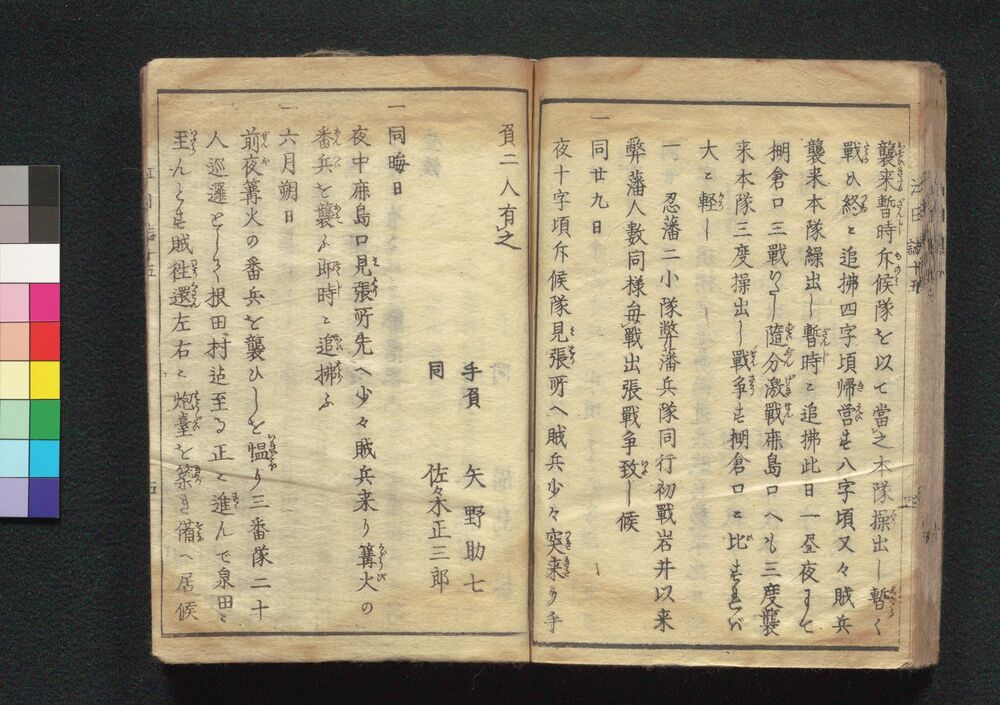 襲来暫時斥候隊を以て當之本隊操出し暫く
戦ひ終に追拂四字頃帰営す八字頃又々賊兵
襲来本隊繰出し暫時に追拂此日一昼夜にて
棚倉口三戦いたし隨分激戦麻島口へも三度襲
来本隊三度操出し戦争す棚倉口に比すれバ
大に軽し
一 忍藩二小隊弊藩兵隊同行初戦岩井以来
弊藩人数同様毎戦出張戦争致し候
一 同廿九日
夜十字頃斥候隊見張所へ賊兵少々突来り手
負二人有之
手負 矢野助七
同 佐々木正三郎
一 同晦日
夜中麻島口見張所先へ少々賊兵来り篝火の
番兵を襲ふ即時に追拂ふ
一 六月朔日
前夜篝火の番兵を襲ひしを慍り三番隊二十
人巡邏として根田村迠至る正に進んで泉田に
至んとす賊徃還左右に炮臺を築き備へ居候